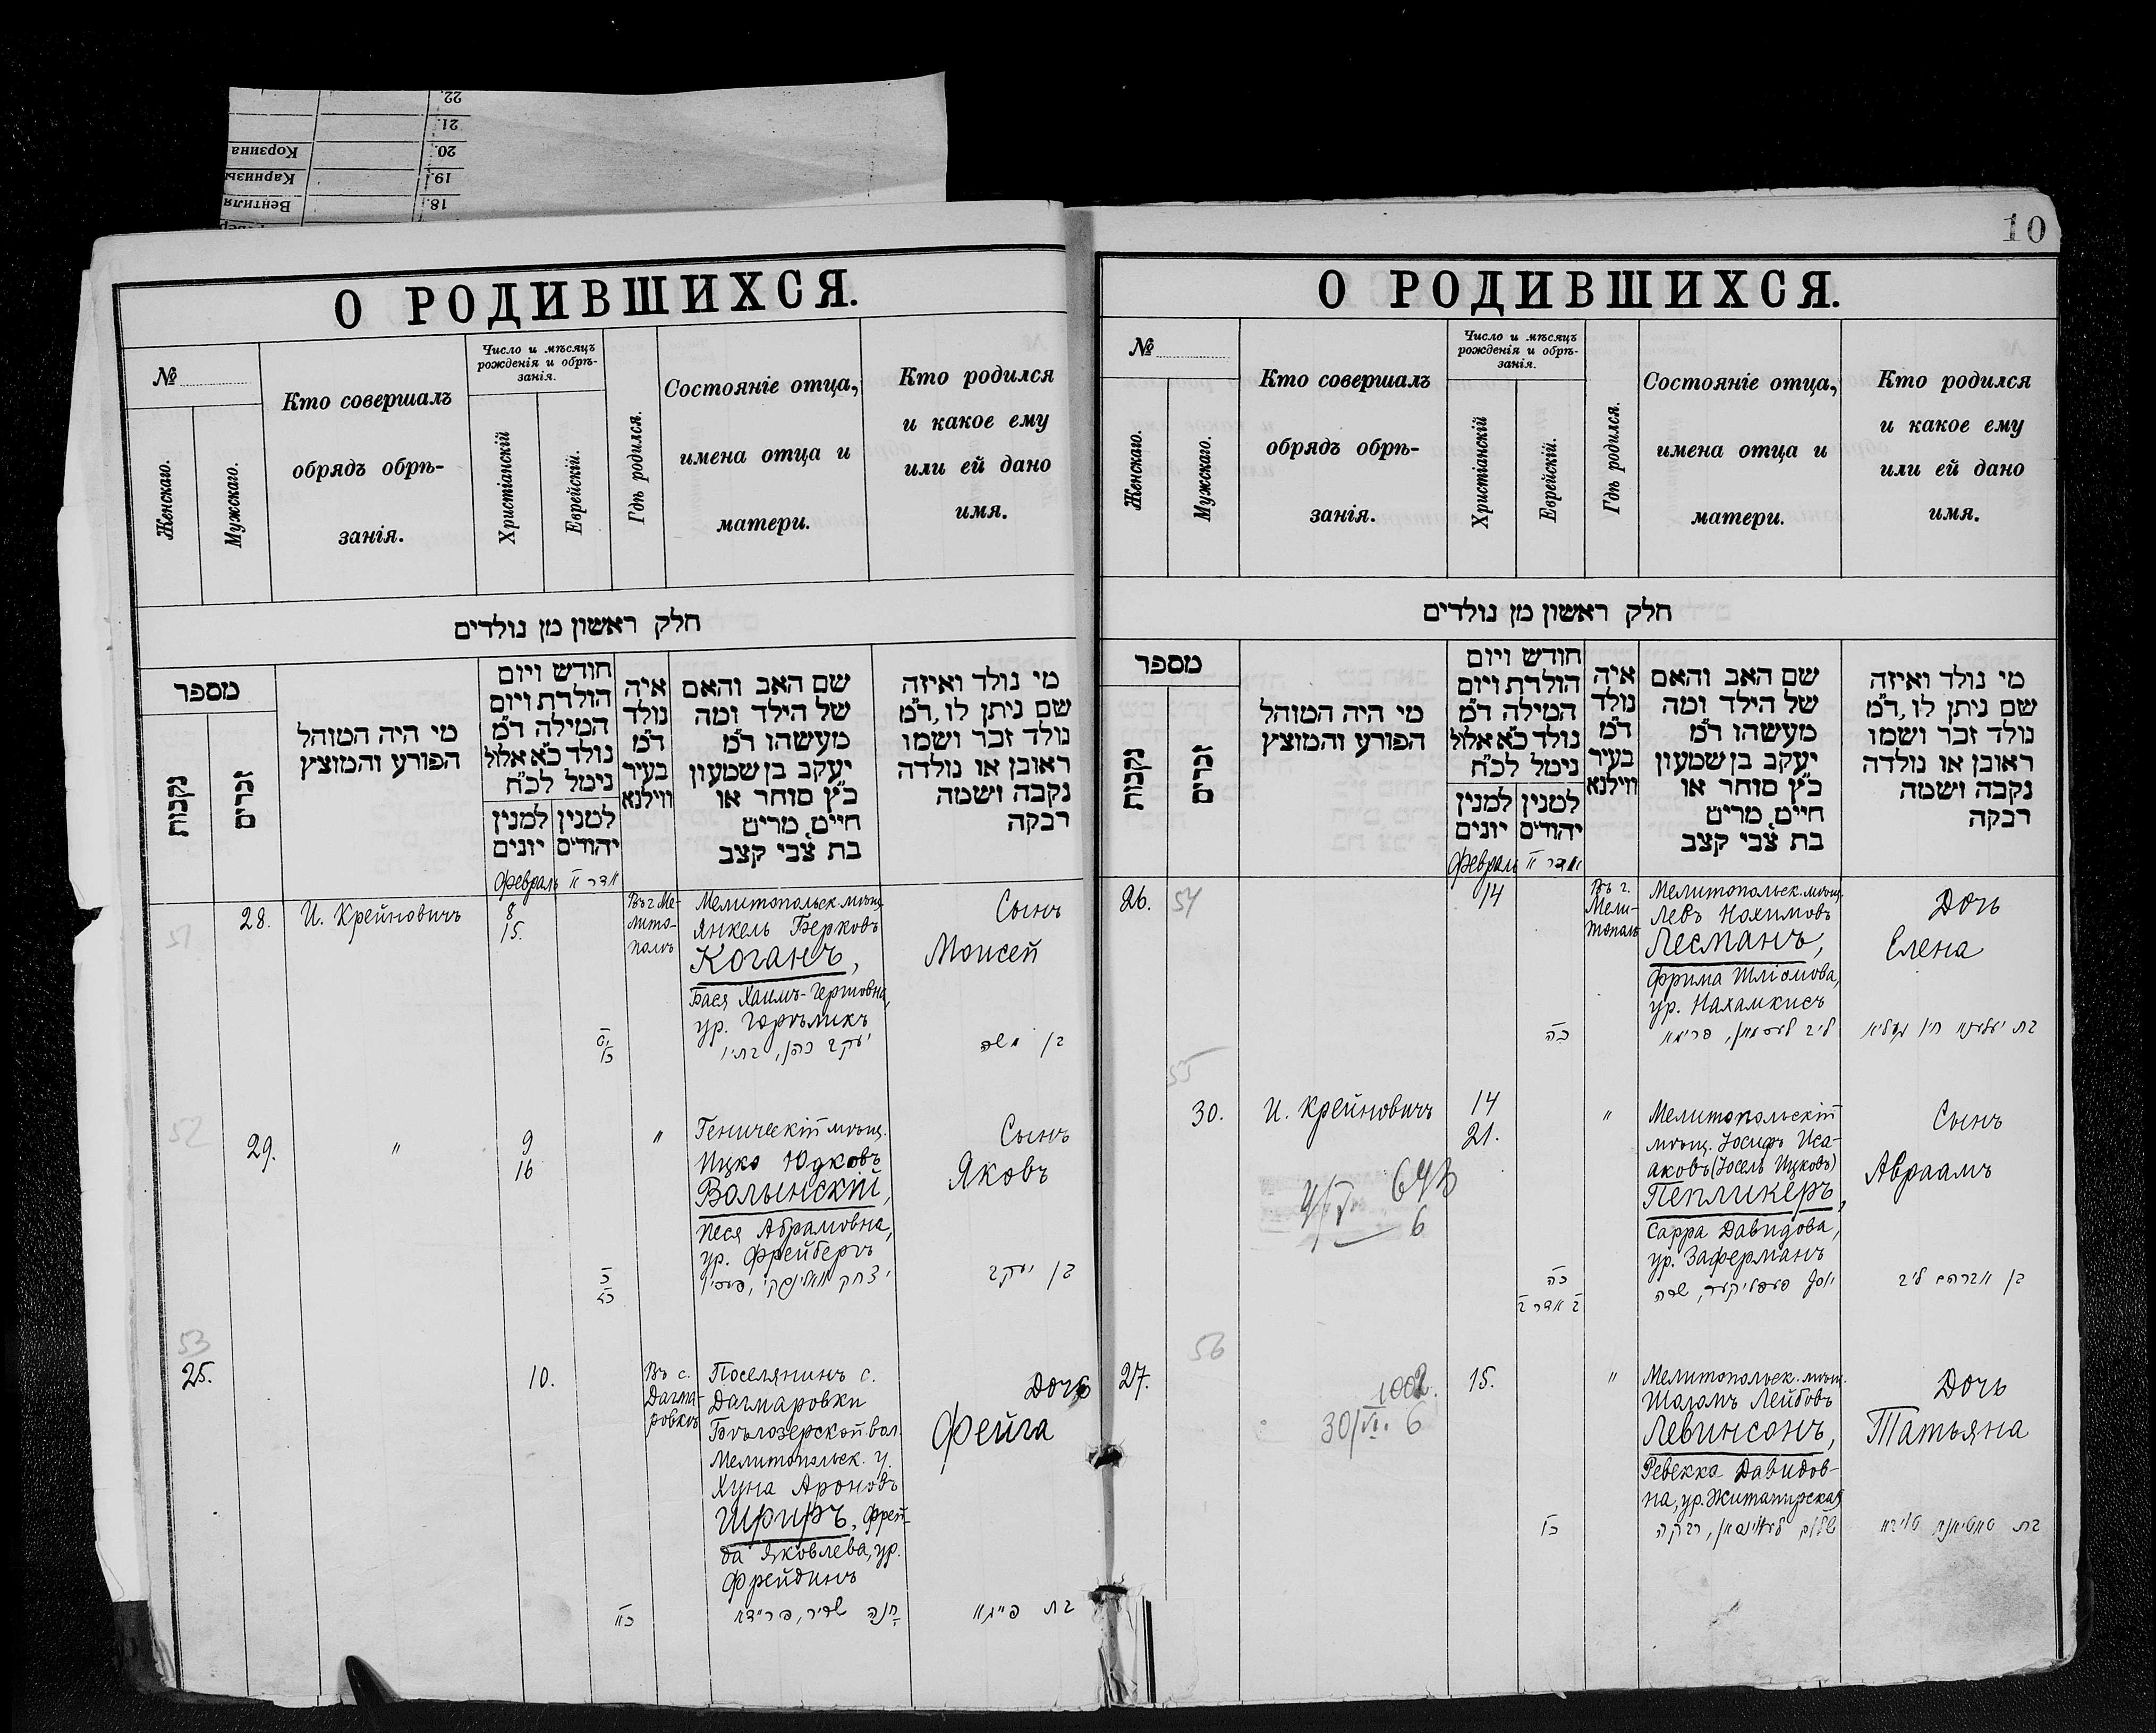 22.
21.
20. Корзина
19. Карнизы
18. Вентиля
О РОДИВШИХСЯ.
№
Женскаго.
Мужскаго.
Кто совершалъ
обрядъ обрѣ-
занія.
Число и мѣсяцъ
рожденія и обрѣ-
занія.
Христіанскій
Еврейскій.
Гдѣ родился.
Состояніе отца,
имена отца и
матери.
Кто родился
и какое ему
или ей дано
имя.
חלק ראשון מן נולדים
מספר
נקבות
זכרים
מי היה המוהל
הפורע והמוצץ
חודש ויום
הולדת ויום
המילה ד״מ
נולד כ״א אלול
נימל לכ״ח
למנין
יונים
למנין
יהודים
איה
נולד
ד״מ
בעיר
ווילנא
שם האב והאם
של הילד ומה
מעשהו ד״מ
יעקב בן שמעון
כ״ץ סוחר או
חיים, מרים
בת צבי קצב
מי נולד ואיזה
שם ניתן לו, ד״מ
נולד זכר ושמו
ראובן או נולדה
נקבה ושמה
רבקה
Февраль
51
28.
И. Крейновичъ
8
15.
Въ г. Ме-
лито-
полѣ
Мелитопольск. мѣщ.
Янкель Берковъ
Коганъ,
Бася Хаимъ-Гершовна,
ур. Горѣликъ
יעקב כהן,
Сынъ
Моисей
בן משה
52
29.
"
9
16
"
Геническій мѣщ.
Ицко Юдковъ
Волынскій,
Песя Абрамовна,
ур. Фрейбергъ
Сынъ
Яковъ
בן יעקב
53
25.
10.
Въ с.
Дагма-
ровкѣ
Поселянинъ с.
Дагмаровки
Бѣлозерской вол.
Мелитопольск. у.
Хуна Ароновъ
Шрифъ, Фрей-
да Яковлева, ур.
Фрейдинъ
Дочь
Фейга
בת פייגא
10
О РОДИВШИХСЯ.
№
Женскаго.
Мужскаго.
Кто совершалъ
обрядъ обрѣ-
занія.
Число и мѣсяцъ
рожденія и обрѣ-
занія.
Христіанскій
Еврейскій.
Гдѣ родился.
Состояніе отца,
имена отца и
матери.
Кто родился
и какое ему
или ей дано
имя.
חלק ראשון מן נולדים
מספר
נקבות
זכרים
מי היה המוהל
הפורע והמוצץ
חודש ויום
הולדת ויום
המילה ד״מ
נולד כ״א אלול
נימל לכ״ח
למנין
יונים
למנין
יהודים
איה
נולד
ד״מ
בעיר
ווילנא
שם האב והאם
של הילד ומה
מעשהו ד״מ
יעקב בן שמעון
כ״ץ סוחר או
חיים, מרים
בת צבי קצב
מי נולד ואיזה
שם ניתן לו, ד״מ
נולד זכר ושמו
ראובן או נולדה
נקבה ושמה
רבקה
Февраль
26.
54
14
Въ г.
Мели-
тополѣ
Мелитопольск. мѣщ.
Левъ Нохимовъ
Лесманъ,
Фрима Шліомова,
ур. Нахамкисъ
ליב לעסמאן, פרימא
Дочь
Елена
55
30.
И. Крейновичъ
14
21.
"
Мелитопольскій
мѣщ. Іосифъ Иса-
аковъ (Іосель Ицковъ)
Пепликеръ,
Сарра Давидова,
ур. Заферманъ
יוסף פעפליקער, שרה
Сынъ
Авраамъ
בן אברהם ליב
56
27.
1002.
30/VI. 6
15.
"
Мелитопольск. мѣщ.
Шоломъ Лейбовъ
Левинсонъ,
Ревекка Давидов-
на, ур. Житомирская
שלום לעווינסאן, רבקה
Дочь
Татьяна